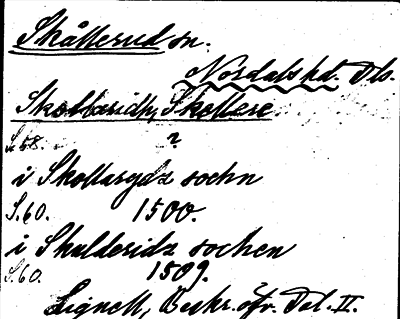 Skållerud sn.
Nordals hd. Dls.
Skotlaridh, Skollere
S. 58. ?
i Skollarydz sochn
S. 60. 1500.
i Skulderidz sochen
S. 60. 1509.
Lignell, Beskr. öfv. Dal. II.